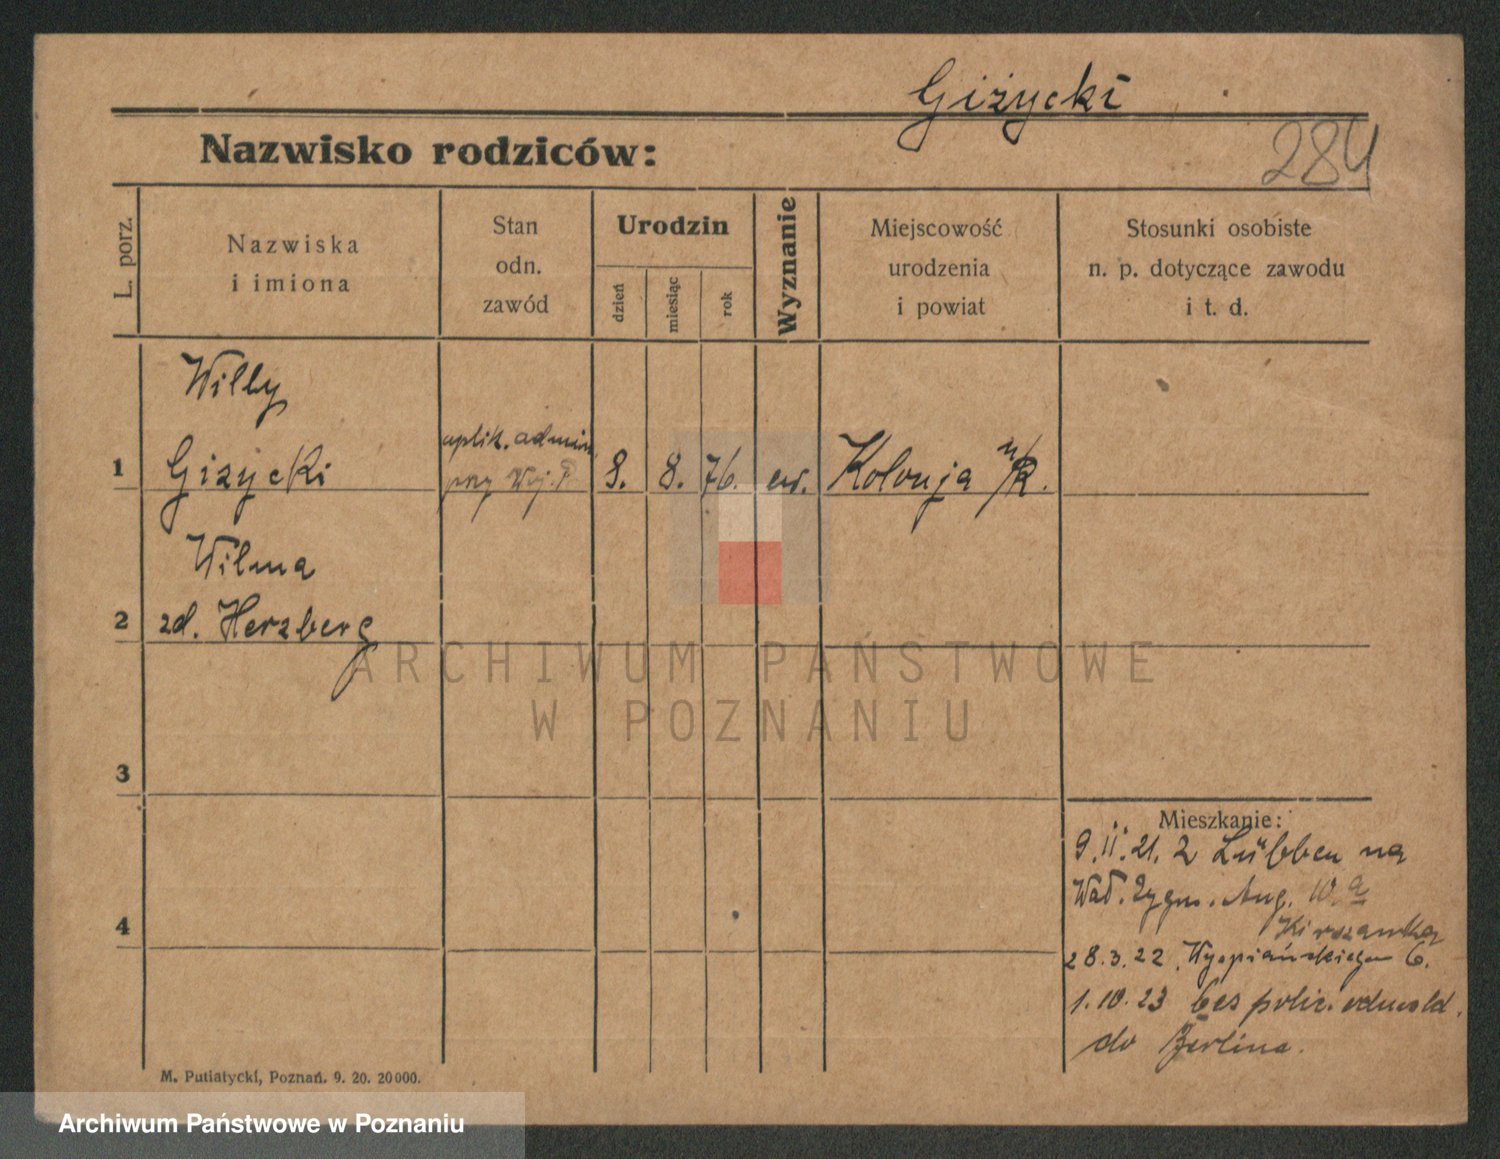 Giżycki
284
Nazwisko rodziców:
L. porz.
Nazwiska
i imiona
Stan
odn.
zawód
Urodzin
dzień
miesiąc
rok
Wyznanie
Miejscowość
urodzenia
i powiat
Stosunki osobiste
n. p. dotyczące zawodu
i t. d.
Willy
1 Giżycki
aplik. admin.
przy Woj. P.
8. 8. 76. ew. Kolonja n/R.
Wilma
2 zd. Herzberg
ARCHIWUM PAŃSTWOWE
W POZNANIU
3
Mieszkanie:
9.II.21. z Lübben na
Wał. Zygm. Aug. 10.a
4
28.3.22. Wyspiańskiego 6.
1.10.23 bez polic. odmeld.
do Berlina.
M. Putiatycki, Poznań. 9. 20. 20000.
Archiwum Państwowe w Poznaniu